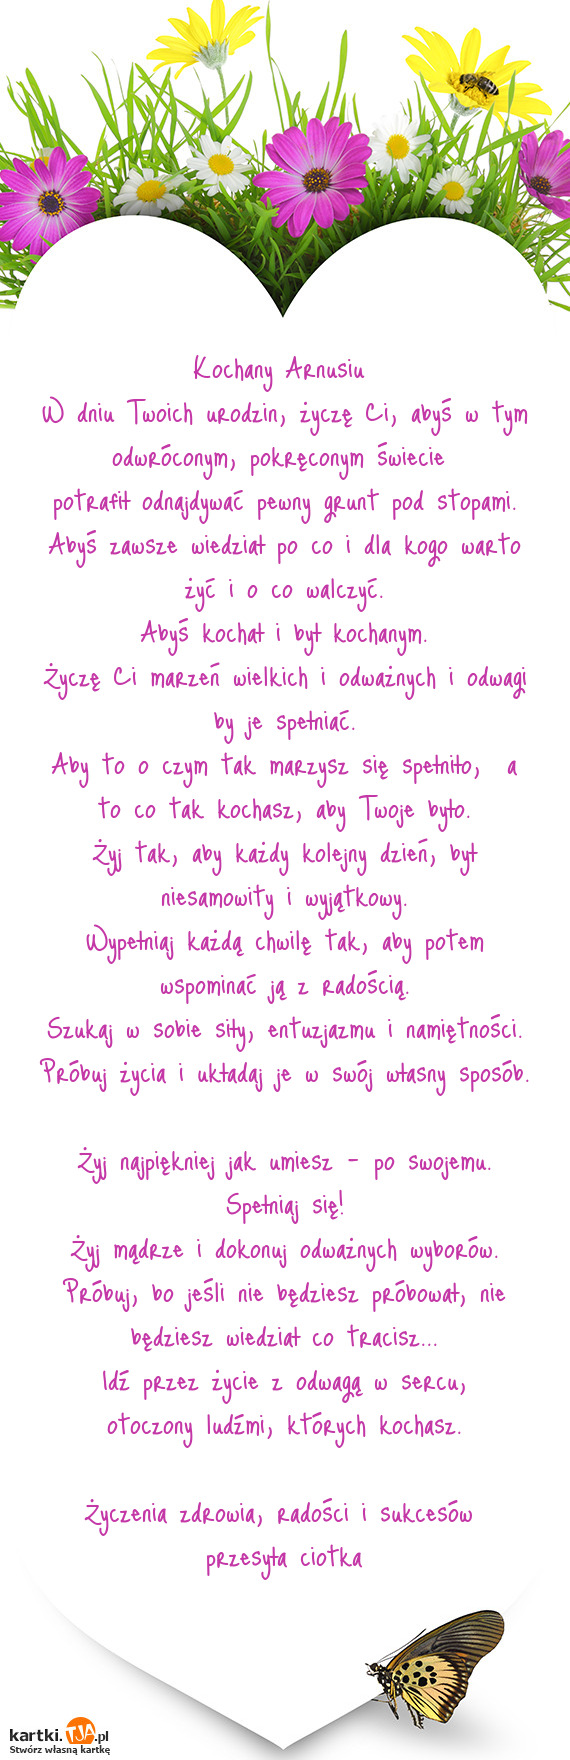 Kochany Arnusiu
W dniu Twoich urodzin, życzę Ci, abyś w tym
odwróconym, pokręconym świecie
potrafił odnajdywać pewny grunt pod stopami.
Abyś zawsze wiedział po co i dla kogo warto
żyć i o co walczyć.
Abyś kochał i był kochanym.
Życzę Ci marzeń wielkich i odważnych i odwagi
by je spełniać.
Aby to o czym tak marzysz się spełniło, a
to co tak kochasz, aby Twoje było.
Żyj tak, aby każdy kolejny dzień, był
niesamowity i wyjątkowy.
Wypełniaj każdą chwilę tak, aby potem
wspominać ją z radością.
Szukaj w sobie siły, entuzjazmu i namiętności.
Próbuj życia i układaj je w swój własny sposób.
Żyj najpiękniej jak umiesz - po swojemu.
Spełniaj się!
Żyj mądrze i dokonuj odważnych wyborów.
Próbuj, bo jeśli nie będziesz próbował, nie
będziesz wiedział co tracisz...
Idź przez życie z odwagą w sercu,
otoczony ludźmi, których kochasz.
Życzenia zdrowia, radości i sukcesów
przesyła ciotka
kartki.TJA.pl
Stwórz własną kartkę